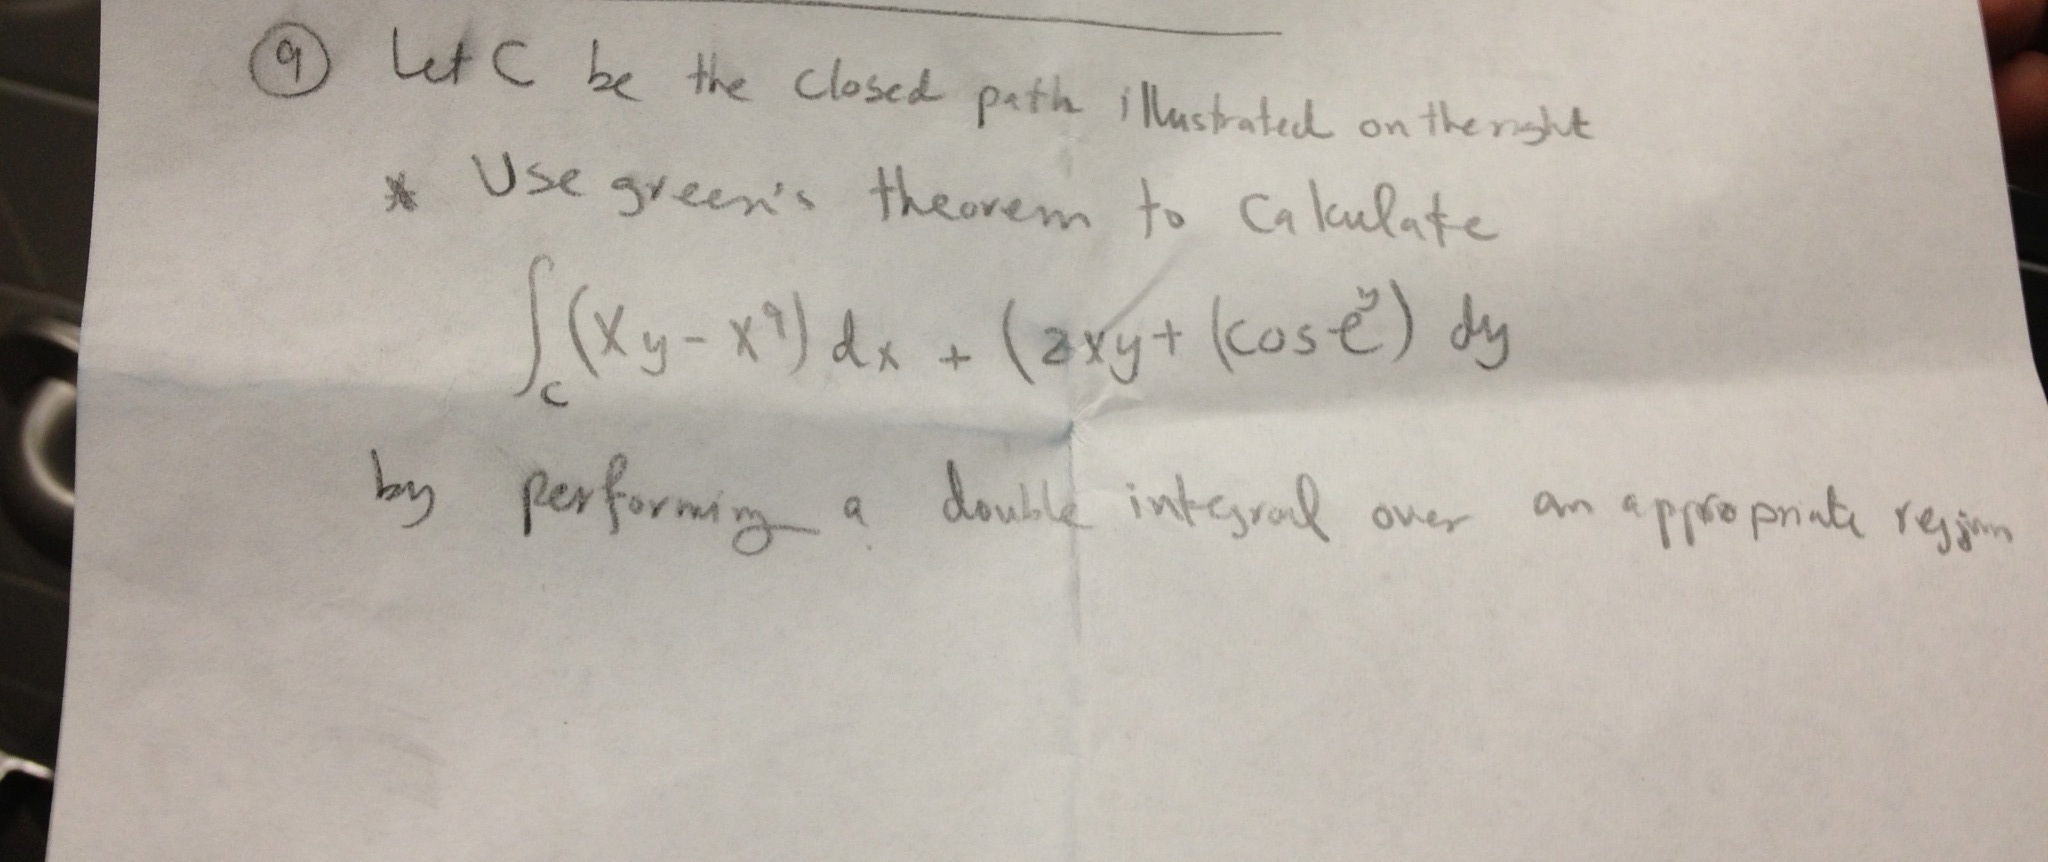 9 Let C be the closed path illustrated on the right
* Use green's theorem to Calculate
∫_C (xy - x⁹) dx + (2xy + (cos e^y) dy
by performing a double integral over an appropriate region